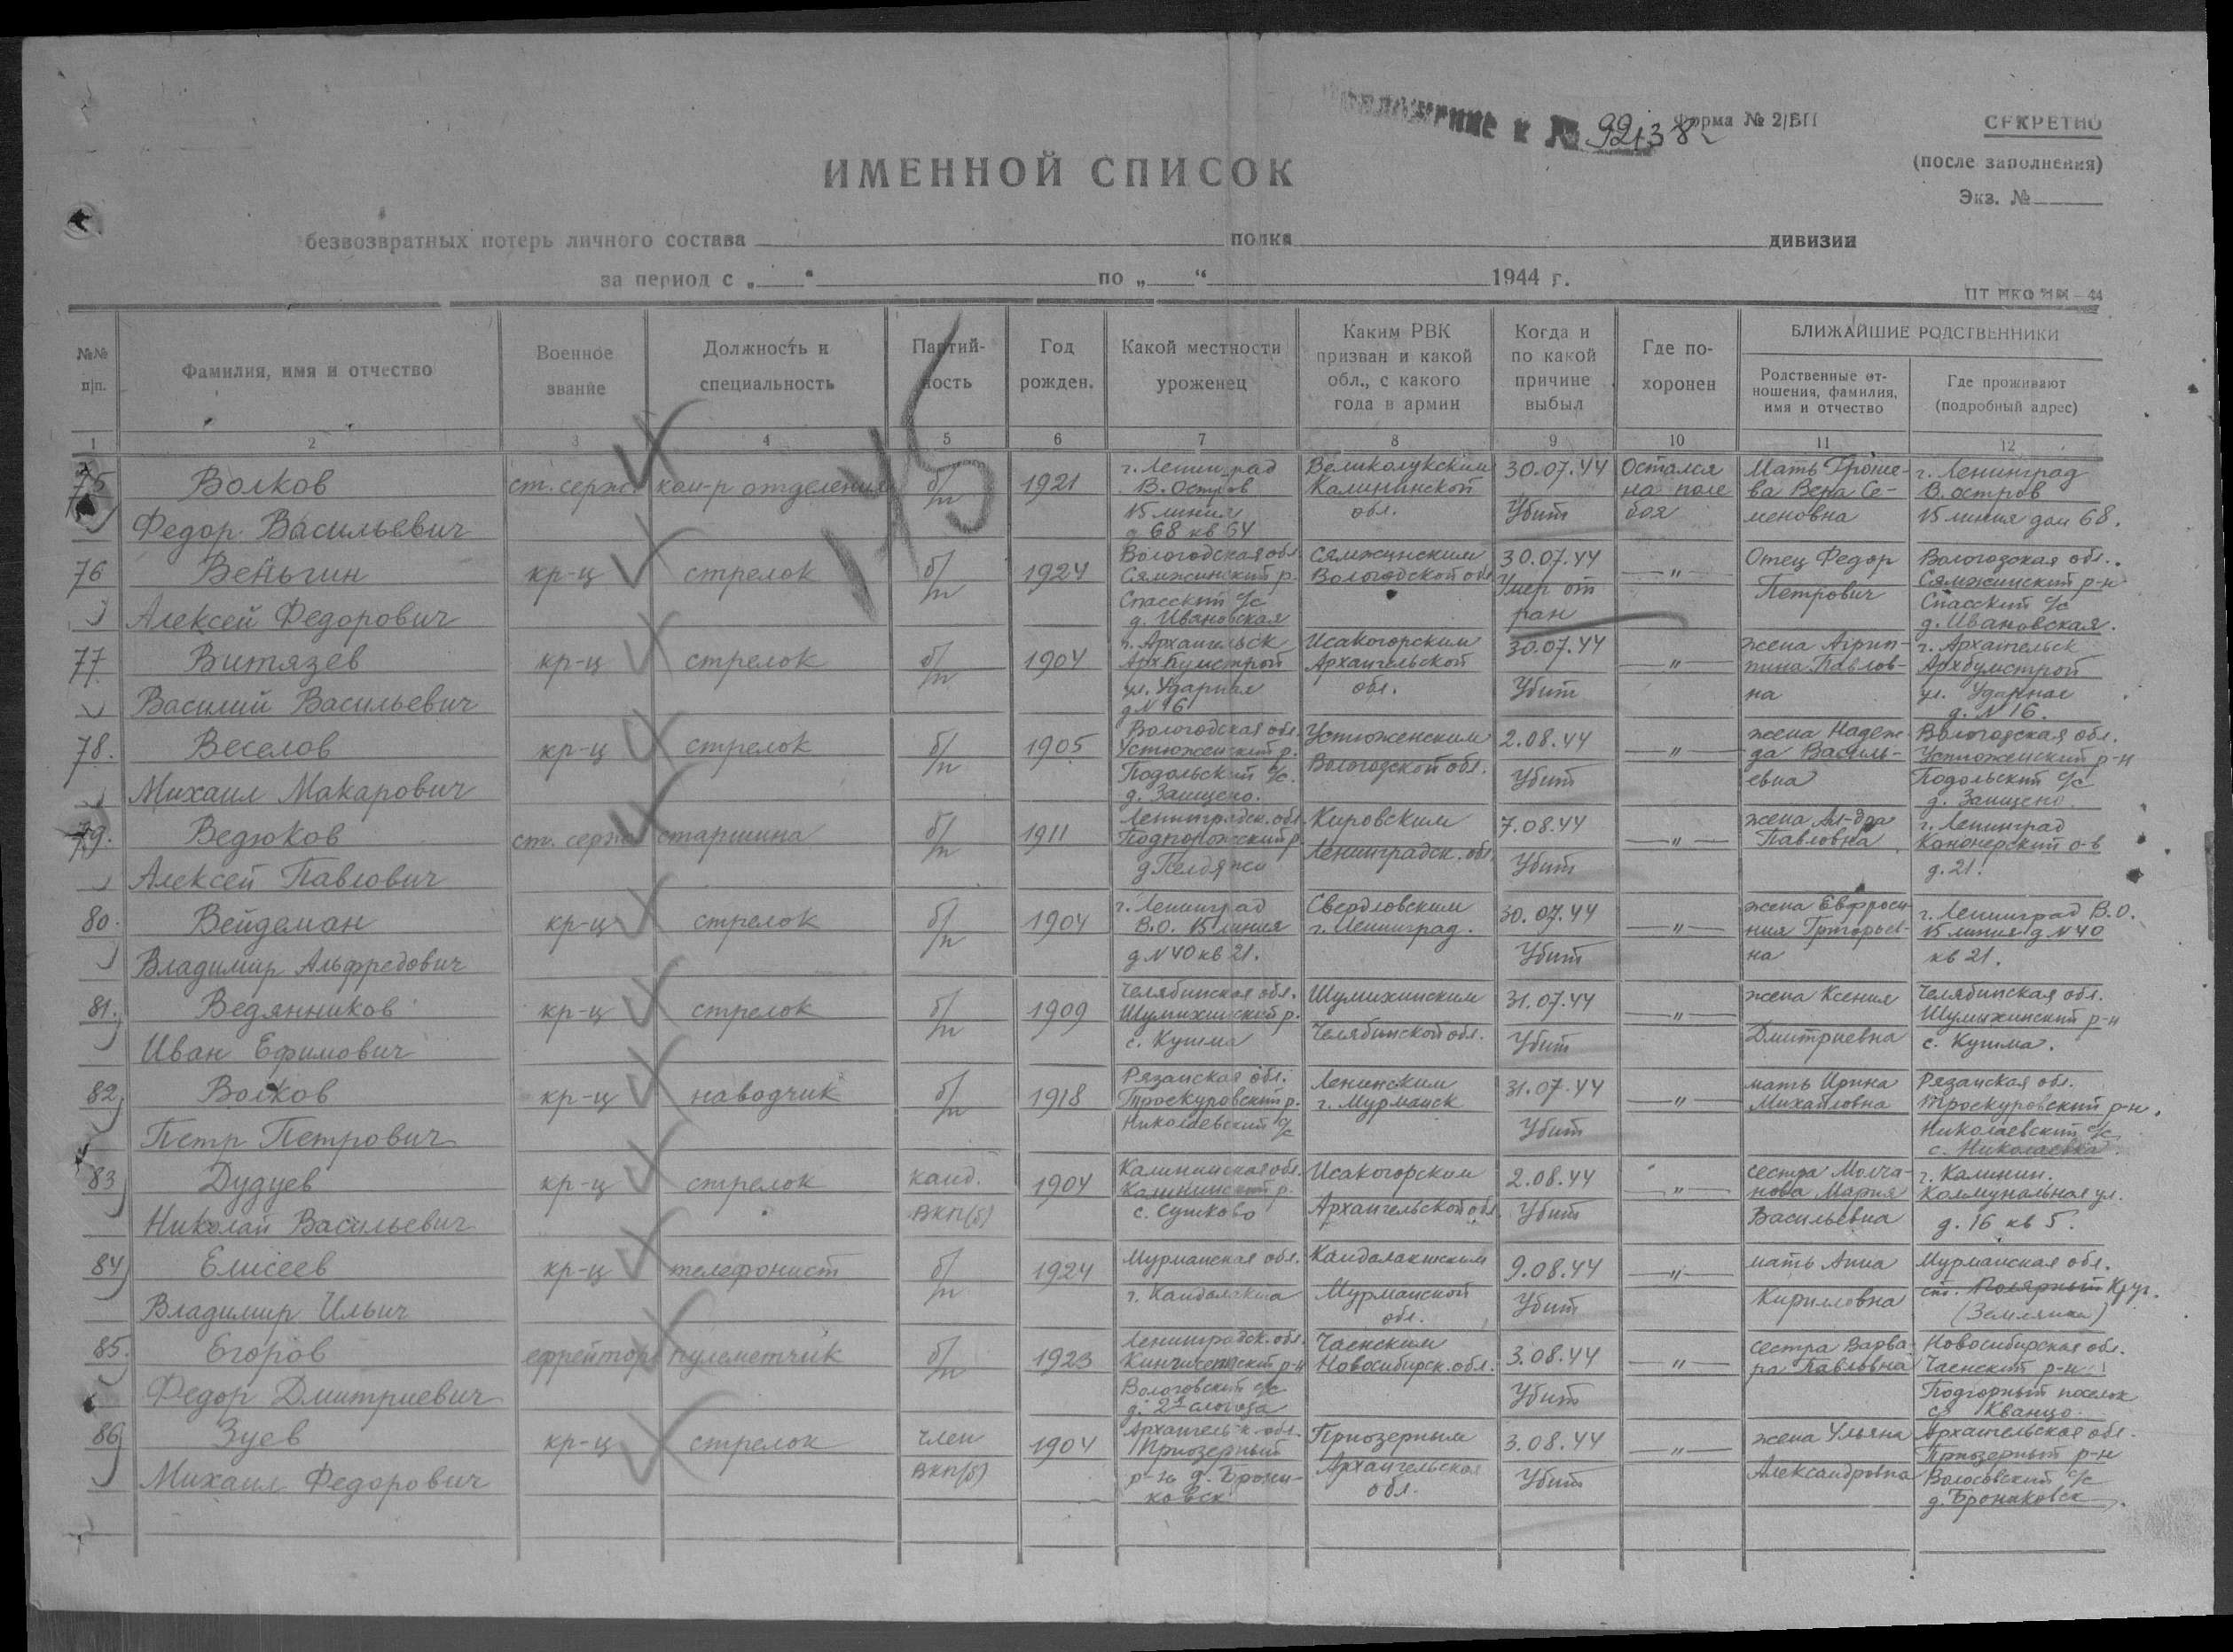 Приложение к № 92138
Форма № 2/БП
СЕКРЕТНО
(после заполнения)
Экз. №
ИМЕННОЙ СПИСОК
безвозвратных потерь личного состава полка дивизии
за период с „ “ по „ “ 1944 г.
№№ п|п.
Фамилия, имя и отчество
Военное звание
Должность и специальность
Партий-ность
Год рожден.
Какой местности уроженец
Каким РВК призван и какой обл., с какого года в армии
Когда и по какой причине выбыл
Где по-хоронен
БЛИЖАЙШИЕ РОДСТВЕННИКИ
Родственные от-ношения, фамилия, имя и отчество
Где проживают (подробный адрес)
1 2 3 4 5 6 7 8 9 10 11 12
145
75 Волков Федор Васильевич ст. серж. ком-р отделения б/п 1921 г. Ленинград В. Остров 15 линия д 68 кв 64 Великолукским Калининской обл. 30.07.44 Убит Остался на поле боя Мать Вера Семеновна г. Ленинград В. остров 15 линия дом 68.
76 Веньгин Алексей Федорович кр-ц стрелок б/п 1924 Вологодская обл. Сямженский р. Спасский с/с д. Ивановская Сямженским Вологодской обл 30.07.44 Умер от ран —"— Отец Федор Петрович Вологодская обл. Сямженский р-н Спасский с/с д. Ивановская.
77 Витязев Василий Васильевич кр-ц стрелок б/п 1904 г. Архангельск Архбумстрой ул. Ударная д N 16 Исакогорским Архангельской обл. 30.07.44 Убит —"— жена Агрип-пина Павлов-на г. Архангельск Архбумстрой ул. Ударная д. N 16.
78. Веселов Михаил Макарович кр-ц стрелок б/п 1905 Вологодская обл. Устюженский р. Подольский с/с. д. Устюженским Вологодской обл. 2.08.44 Убит —"— жена Надеж-да Василь-евна Вологодская обл. Устюженский р-н Подольский с/с д.
79. Ведюков Алексей Павлович ст. серж старшина б/п 1911 Ленинградск. обл Подпорожский р. Кировским Ленинградск. обл 7.08.44 Убит —"— жена Ал-дра Павловна г. Ленинград Канонерский о-в д. 21.
80. Вейдеман Владимир Альфредович кр-ц стрелок б/п 1904 г. Ленинград В.О. 15 линия д N 40 кв 21. Свердловским г. Ленинград. 30.07.44 Убит —"— жена Ефроси-ния Григорьев-на г. Ленинград В.О. 15 линия д N 40 кв 21.
81. Ведянников Иван Ефимович кр-ц стрелок б/п 1909 Челябинская обл. Шумихинский р. с. Кушма Шумихинским Челябинской обл. 31.07.44 Убит —"— жена Ксения Дмитриевна Челябинская обл. Шумихинский р-н с. Кушма.
82 Волков Петр Петрович кр-ц наводчик б/п 1918 Рязанская обл. Троекуровский р. Николаевский с/с Ленинским г. Мурманск 31.07.44 Убит —"— мать Ирина Михайловна Рязанская обл. Троекуровский р-н. Николаевский с/с с. Николаевка.
83 Дудуев Николай Васильевич кр-ц стрелок канд. ВКП(б) 1904 Калининская обл. Калининский р. с. Сушково Исакогорским Архангельской обл. 2.08.44 Убит —"— сестра Молча-нова Мария Васильевна г. Калинин. Коммунальная ул. д. 16 кв 5.
84 Елисеев Владимир Ильич кр-ц телефонист б/п 1924 Мурманская обл. г. Кандалакша Кандалакшским Мурманской обл. 9.08.44 Убит —"— мать Анна Кирилловна Мурманская обл. ст. Полярный Круг. (Землянка)
85. Егоров Федор Дмитриевич ефрейтор пулеметчик б/п 1923 Ленинградск. обл. р-н с/с Чаенским Новосибирск. обл. 3.08.44 Убит —"— сестра Варва-ра Павловна Новосибирская обл. Чаенский р-н Подгорный поселок
86 Зуев Михаил Федорович кр-ц стрелок член ВКП(б) 1904 Архангельск обл. Приозерный р-н д. Брони-ковск Приозерным Архангельская обл. 3.08.44 Убит —"— жена Ульяна Александровна Архангельская обл. Приозерный р-н Волосовский с/с д. Брониковск.